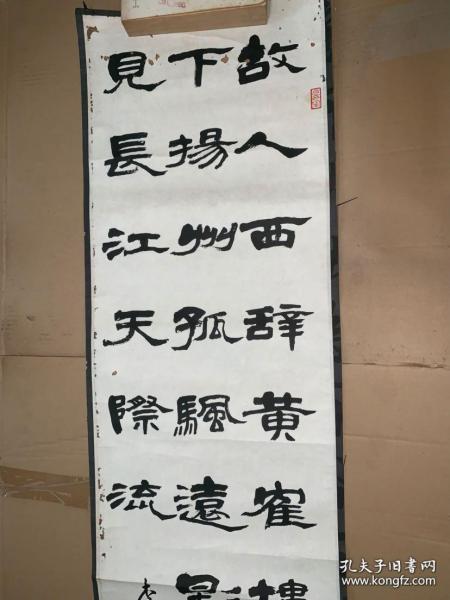 故人西辞黄寉樓
下揚州孤颿遠影
見長江天際流
孔夫子旧书网
www.kongfz.com